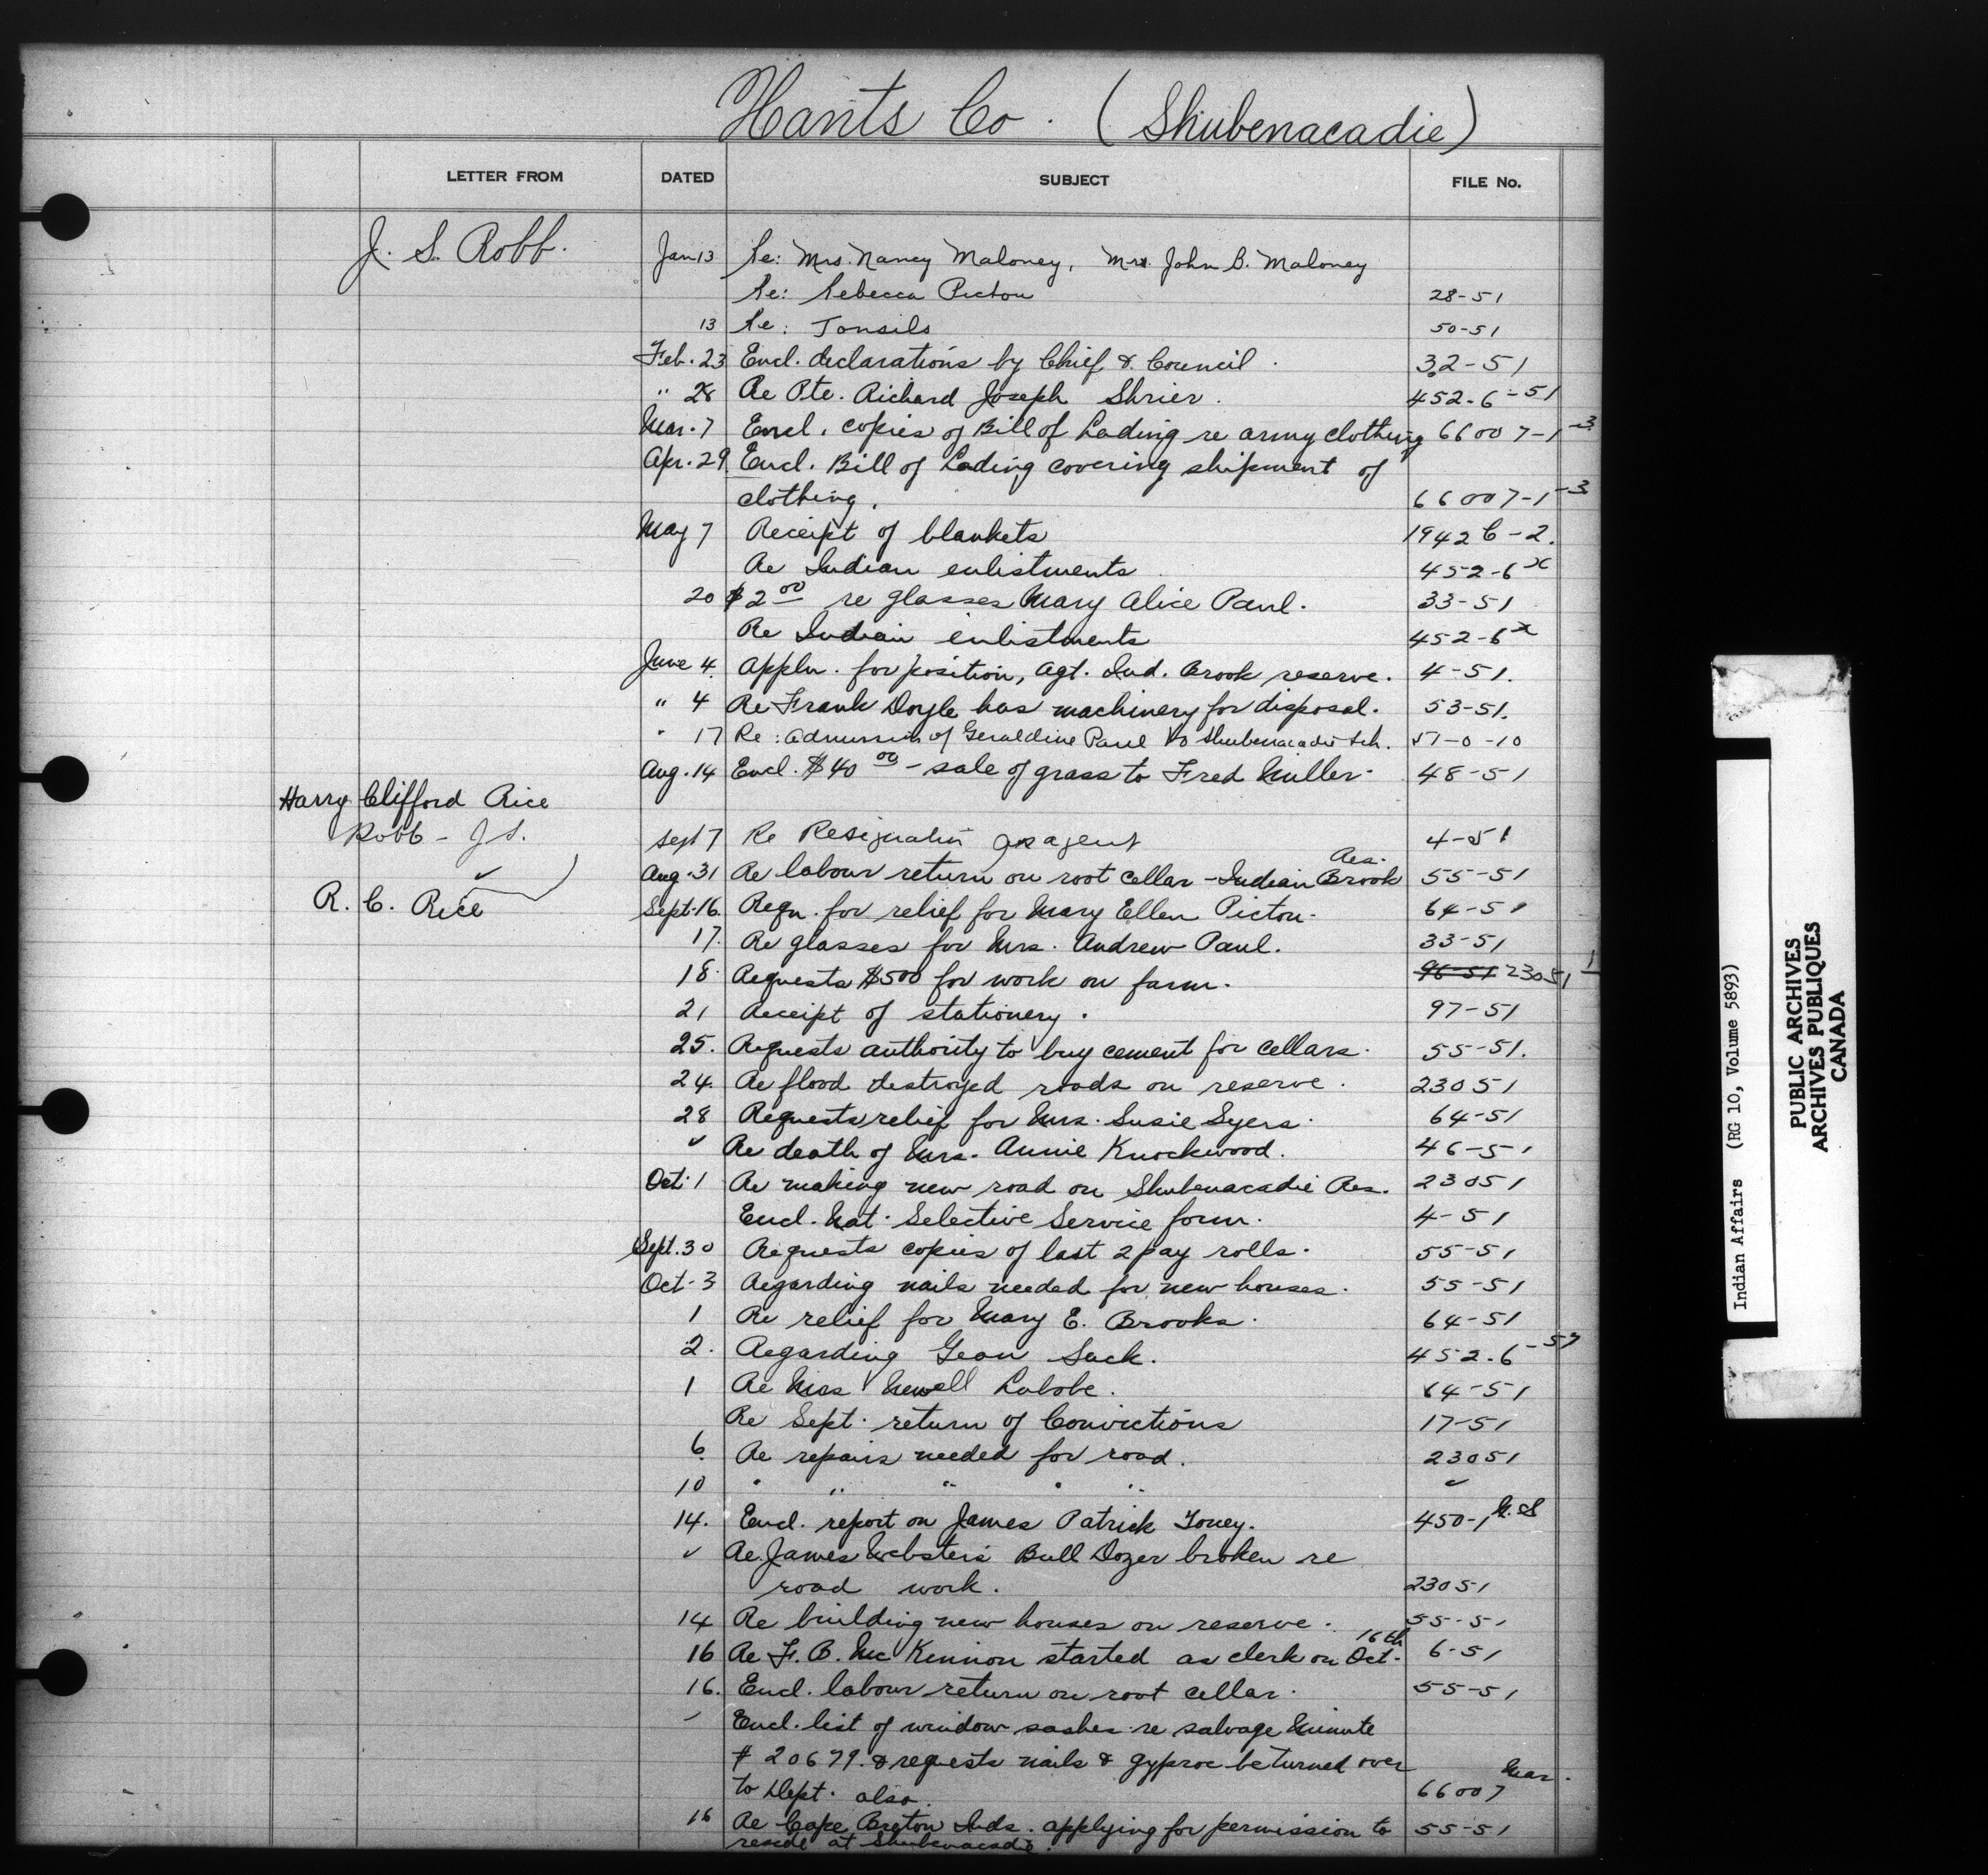 Hants Co. (Shubenacadie)
LETTER FROM DATED SUBJECT FILE No.
J. S. Robb. Jan 13 Re: Mrs. Nancy Maloney, Mrs. John B. Maloney
Re: Rebecca Pictou 28-51
13 Re: Tonsils 50-51
Feb. 23 Encl. declarations by Chief & Council. 32-51
" 28 Re Pte. Richard Joseph Shrier. 452-6-51
Mar. 7 Encl. copies of Bill of Lading re army clothing 66007-1-3
Apr. 29 Encl. Bill of Lading covering shipment of
clothing. 66007-1-3
May 7 Receipt of blankets 1942 C-2.
Re Indian enlistments 452-6 x
20 $2 00 re glasses Mary Alice Paul. 33-51
Re Indian enlistments 452-6 x
June 4. Appln. for position, Agt. Ind. Brook reserve. 4-51.
" 4 Re Frank Doyle has machinery for disposal. 53-51.
" 17 Re: admission of Geraldine Paul to Shubenacadie Sch. 57-0-10
Aug. 14 Encl. $40 00 - sale of grass to Fred Miller. 48-51
Harry Clifford Rice
Robb - J S. Sept 7 Re Resignation as agent 4-51
Aug. 31 Re labour return on root cellar - Indian Brook Res. 55-51
R. C. Rice Sept. 16. Reqn. for relief for Mary Ellen Pictou. 64-51
17. Re glasses for Mrs. Andrew Paul. 33-51
18. Requests $500 for work on farm. 96-51 23051 1
21 Receipt of stationery. 97-51
25. Requests authority to buy cement for cellars. 55-51.
24. Re flood destroyed roads on reserve. 23051
28 Requests relief for Mrs. Susie Syers. 64-51
" Re death of Mrs. Annie Knockwood. 46-51
Oct. 1 Re making new road on Shubenacadie Res. 23051
Encl. Nat. Selective Service form. 4-51
Sept. 30 Requests copies of last 2 pay rolls. 55-51
Oct. 3 Regarding nails needed for new houses. 55-51
1 Re relief for Mary E. Brooks. 64-51
2. Regarding Sack. 452-6
1 Re Mrs Newell Labobe. 64-51
Re Sept. return of Convictions 17-51
6. Re repairs needed for road. 23051
10 " " " " " "
14. Encl. report on James Patrick Toney. 450-1 N.S
" Re. James Webster's Bull Dozer broken re
road work. 23051
14 Re building new houses on reserve. 55-51
16 Re F. B. McKinnon started as clerk on Oct. 16th 6-51
16. Encl. labour return on root cellar. 55-51
" Encl. list of window sashes re salvage Minute
# 20679. & requests nails & gyproc be turned over
to Dept. also. 66007
16 Re Cape Breton Inds. applying for permission to 55-51
reside at Shubenacadie.
Indian Affairs (RG 10, Volume 5893)
PUBLIC ARCHIVES
ARCHIVES PUBLIQUES
CANADA